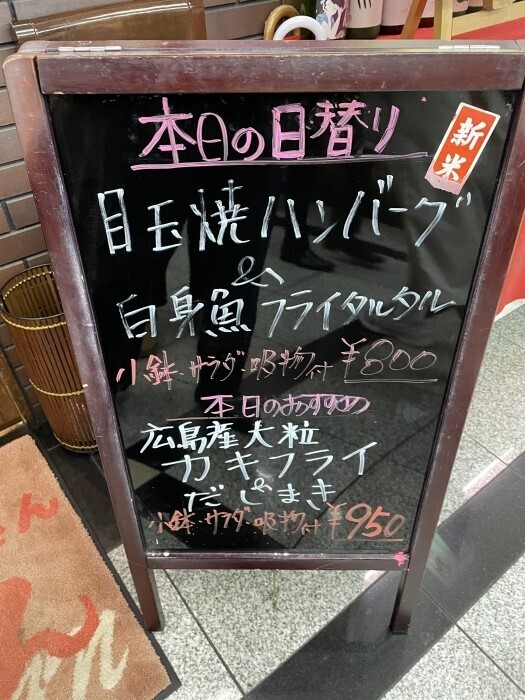 本日の日替り
新米
目玉焼ハンバーグ
&
白身魚フライタルタル
小鉢・サラダ・吸物付 ¥800
本日のおすすめ
広島産大粒
カキフライ
&
だしまき
小鉢・サラダ・吸物付 ¥950